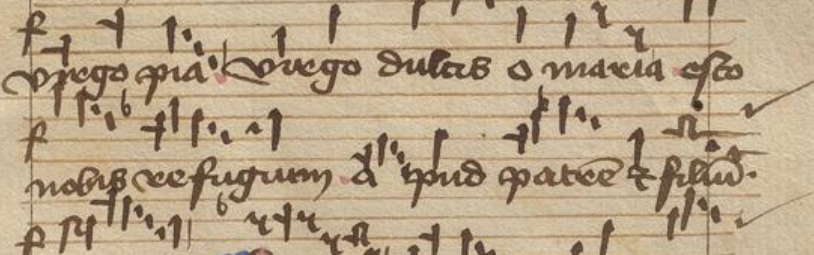 virgo pia virgo dulcis o maria esto
nobis refugium apud patrē ⁊ filiū.